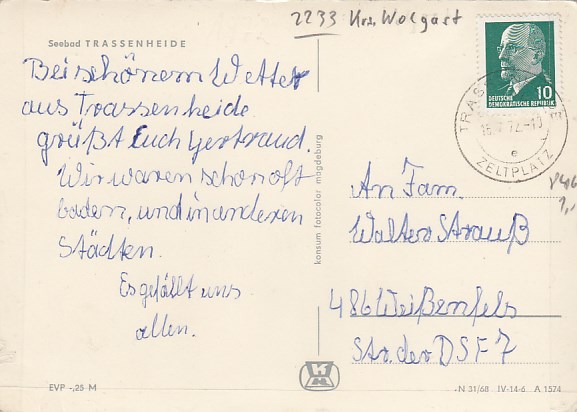 2233 Krs. Wolgast
Seebad TRASSENHEIDE
Bei schönem Wetter
aus Trassenheide
grüßt Euch Gertraud.
Wir waren schon oft
baden, und in anderen
Städten.
Es gefällt uns
allen.
EVP -,25 M
konsum fotocolor magdeburg
10
DEUTSCHE
DEMOKRATISCHE REPUBLIK
ZELTPLATZ
e
An Fam.
Walter Strauß
486 Weißenfels
Str. der DSF 7
N 31/68 IV-14-6 A 1574